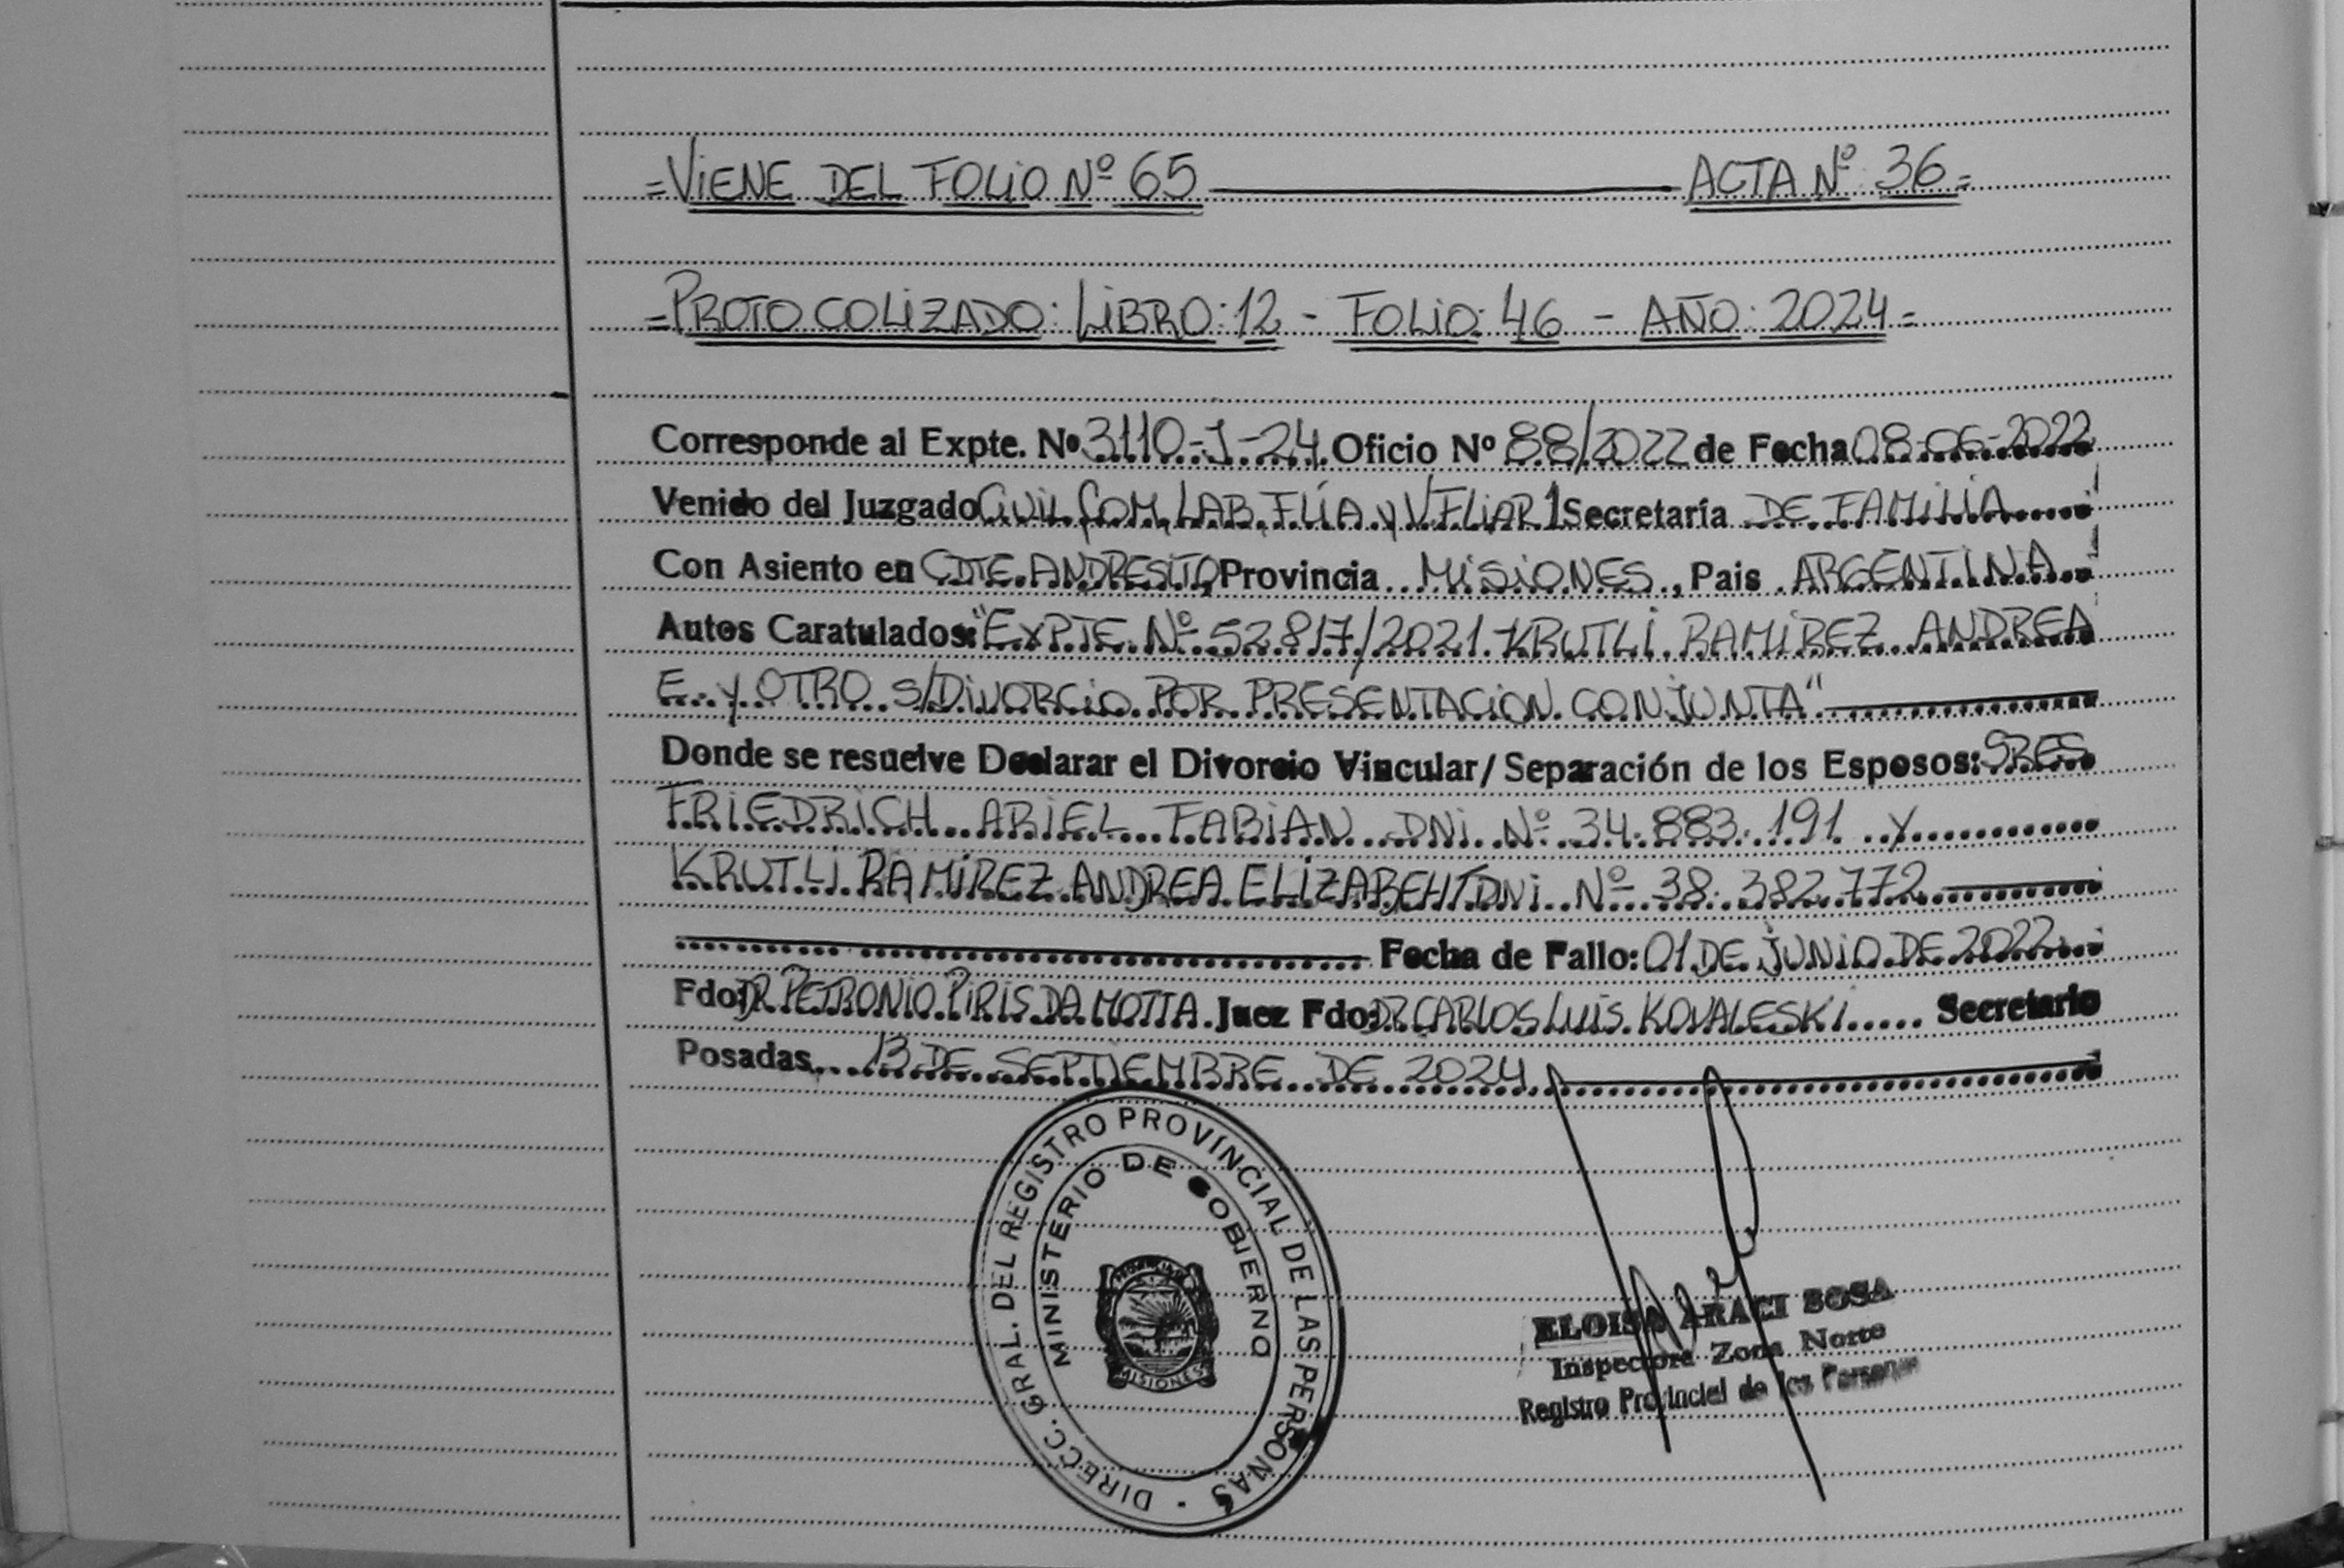 =VIENE DEL FOLIO Nº 65 ACTA Nº 36=
=PROTOCOLIZADO: LIBRO: 12 - FOLIO: 46 - AÑO: 2024=
Corresponde al Expte. Nº 3110-J-24 Oficio Nº 88/2022 de Fecha 08-06-2022
Venido del Juzgado CIVIL, COM, LAB, FLÍA y V.FLIAR 1 Secretaría DE FAMILIA
Con Asiento en CDTE. ANDRESITO Provincia MISIONES, Pais ARGENTINA
Autos Caratulados: "EXPTE. Nº 52817/2021 KRUTLI RAMIREZ ANDREA
E. y OTRO s/DIVORCIO POR PRESENTACION CONJUNTA"
Donde se resuelve Declarar el Divorcio Vincular/Separación de los Esposos: SRES
FRIEDRICH ARIEL FABIAN DNI Nº 34.883.191 y
KRUTLI RAMIREZ ANDREA ELIZABEHT DNI Nº 38.382.772
Fecha de Fallo: 01 DE JUNIO DE 2022
Fdo: DR. PETRONIO PIRIS DA MOTTA Juez Fdo: DR. CARLOS LUIS KOVALESKI Secretario
Posadas, 13 DE SEPTIEMBRE DE 2024
DIRECC. GRAL. DEL REGISTRO PROVINCIAL DE LAS PERSONAS
MINISTERIO DE GOBIERNO
MISIONES
ELOISA ARACI SOSA
Inspectora Zona Norte
Registro Provincial de las Personas